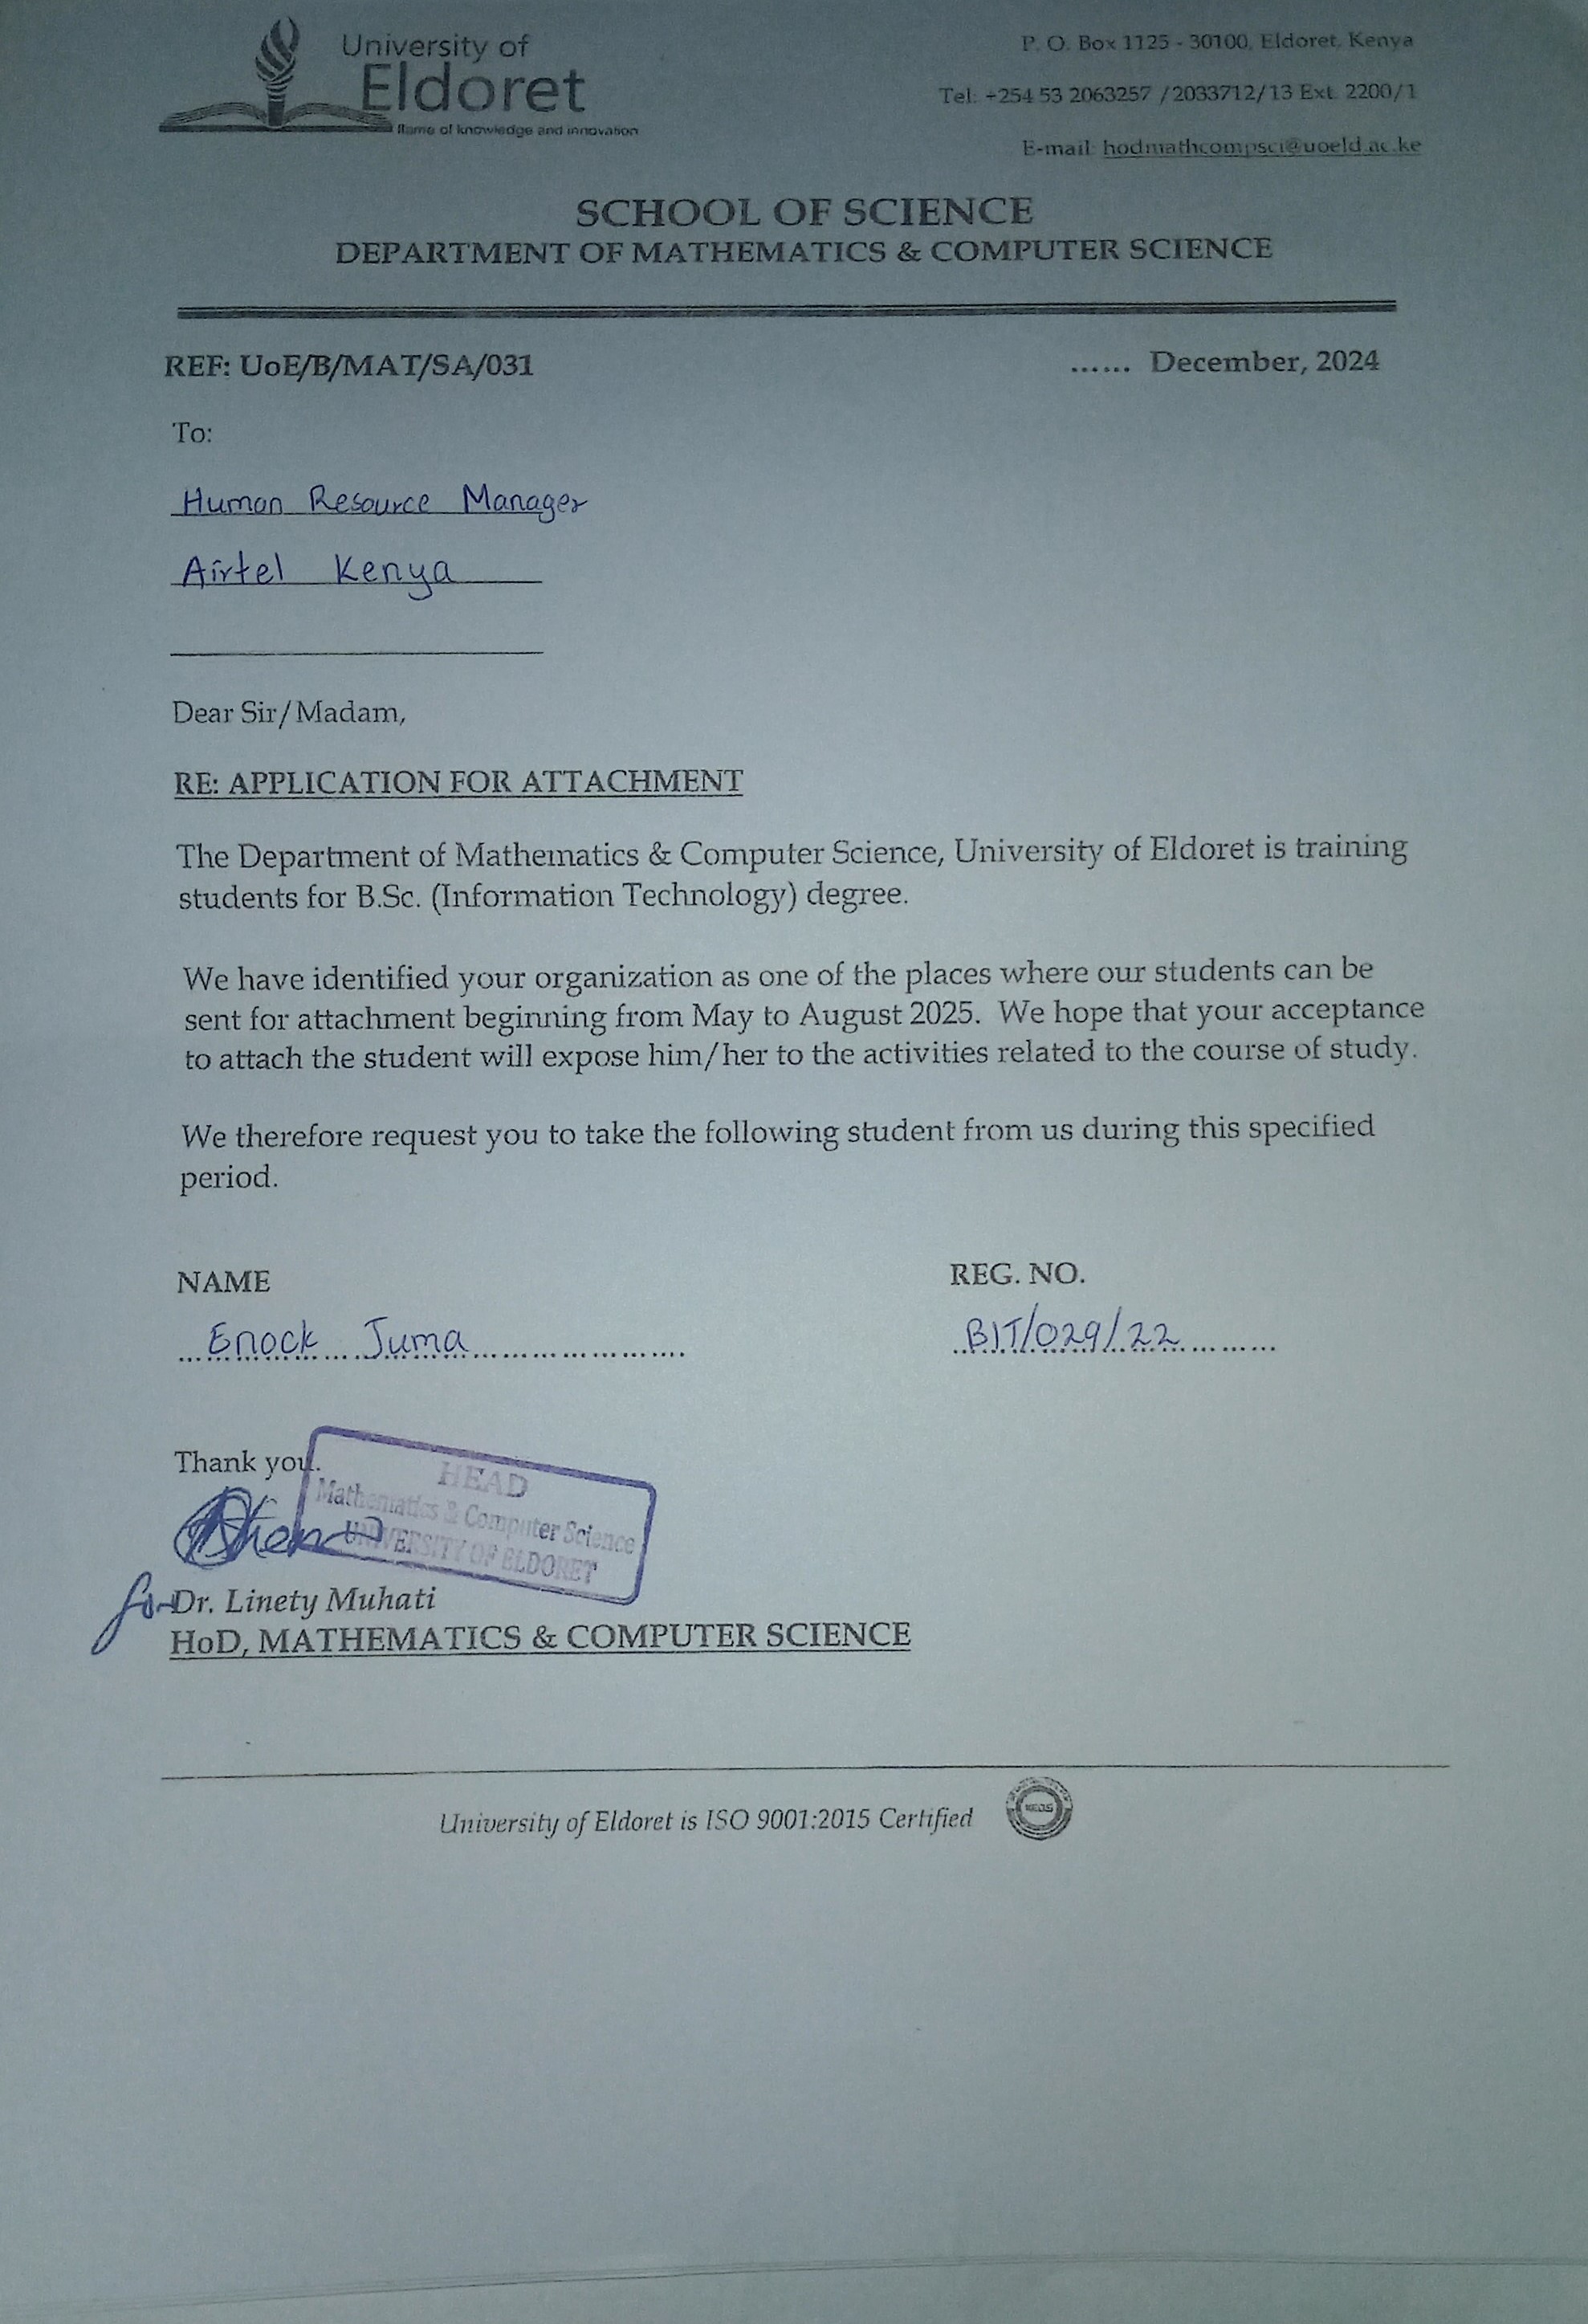 University of
Eldoret
flame of knowledge and innovation
P. O. Box 1125 - 30100, Eldoret, Kenya
Tel: +254 53 2063257 /2033712/13 Ext. 2200/1
E-mail: hodmathcompsci@uoeld.ac.ke
SCHOOL OF SCIENCE
DEPARTMENT OF MATHEMATICS & COMPUTER SCIENCE
REF: UoE/B/MAT/SA/031 ...... December, 2024
To:
Human Resource Manager
Airtel Kenya
Dear Sir/Madam,
RE: APPLICATION FOR ATTACHMENT
The Department of Mathematics & Computer Science, University of Eldoret is training
students for B.Sc. (Information Technology) degree.
We have identified your organization as one of the places where our students can be
sent for attachment beginning from May to August 2025. We hope that your acceptance
to attach the student will expose him/her to the activities related to the course of study.
We therefore request you to take the following student from us during this specified
period.
NAME REG. NO.
Enock Juma BIT/029/22
Thank you.
HEAD
Mathematics & Computer Science
UNIVERSITY OF ELDORET
for Dr. Linety Muhati
HoD, MATHEMATICS & COMPUTER SCIENCE
University of Eldoret is ISO 9001:2015 Certified